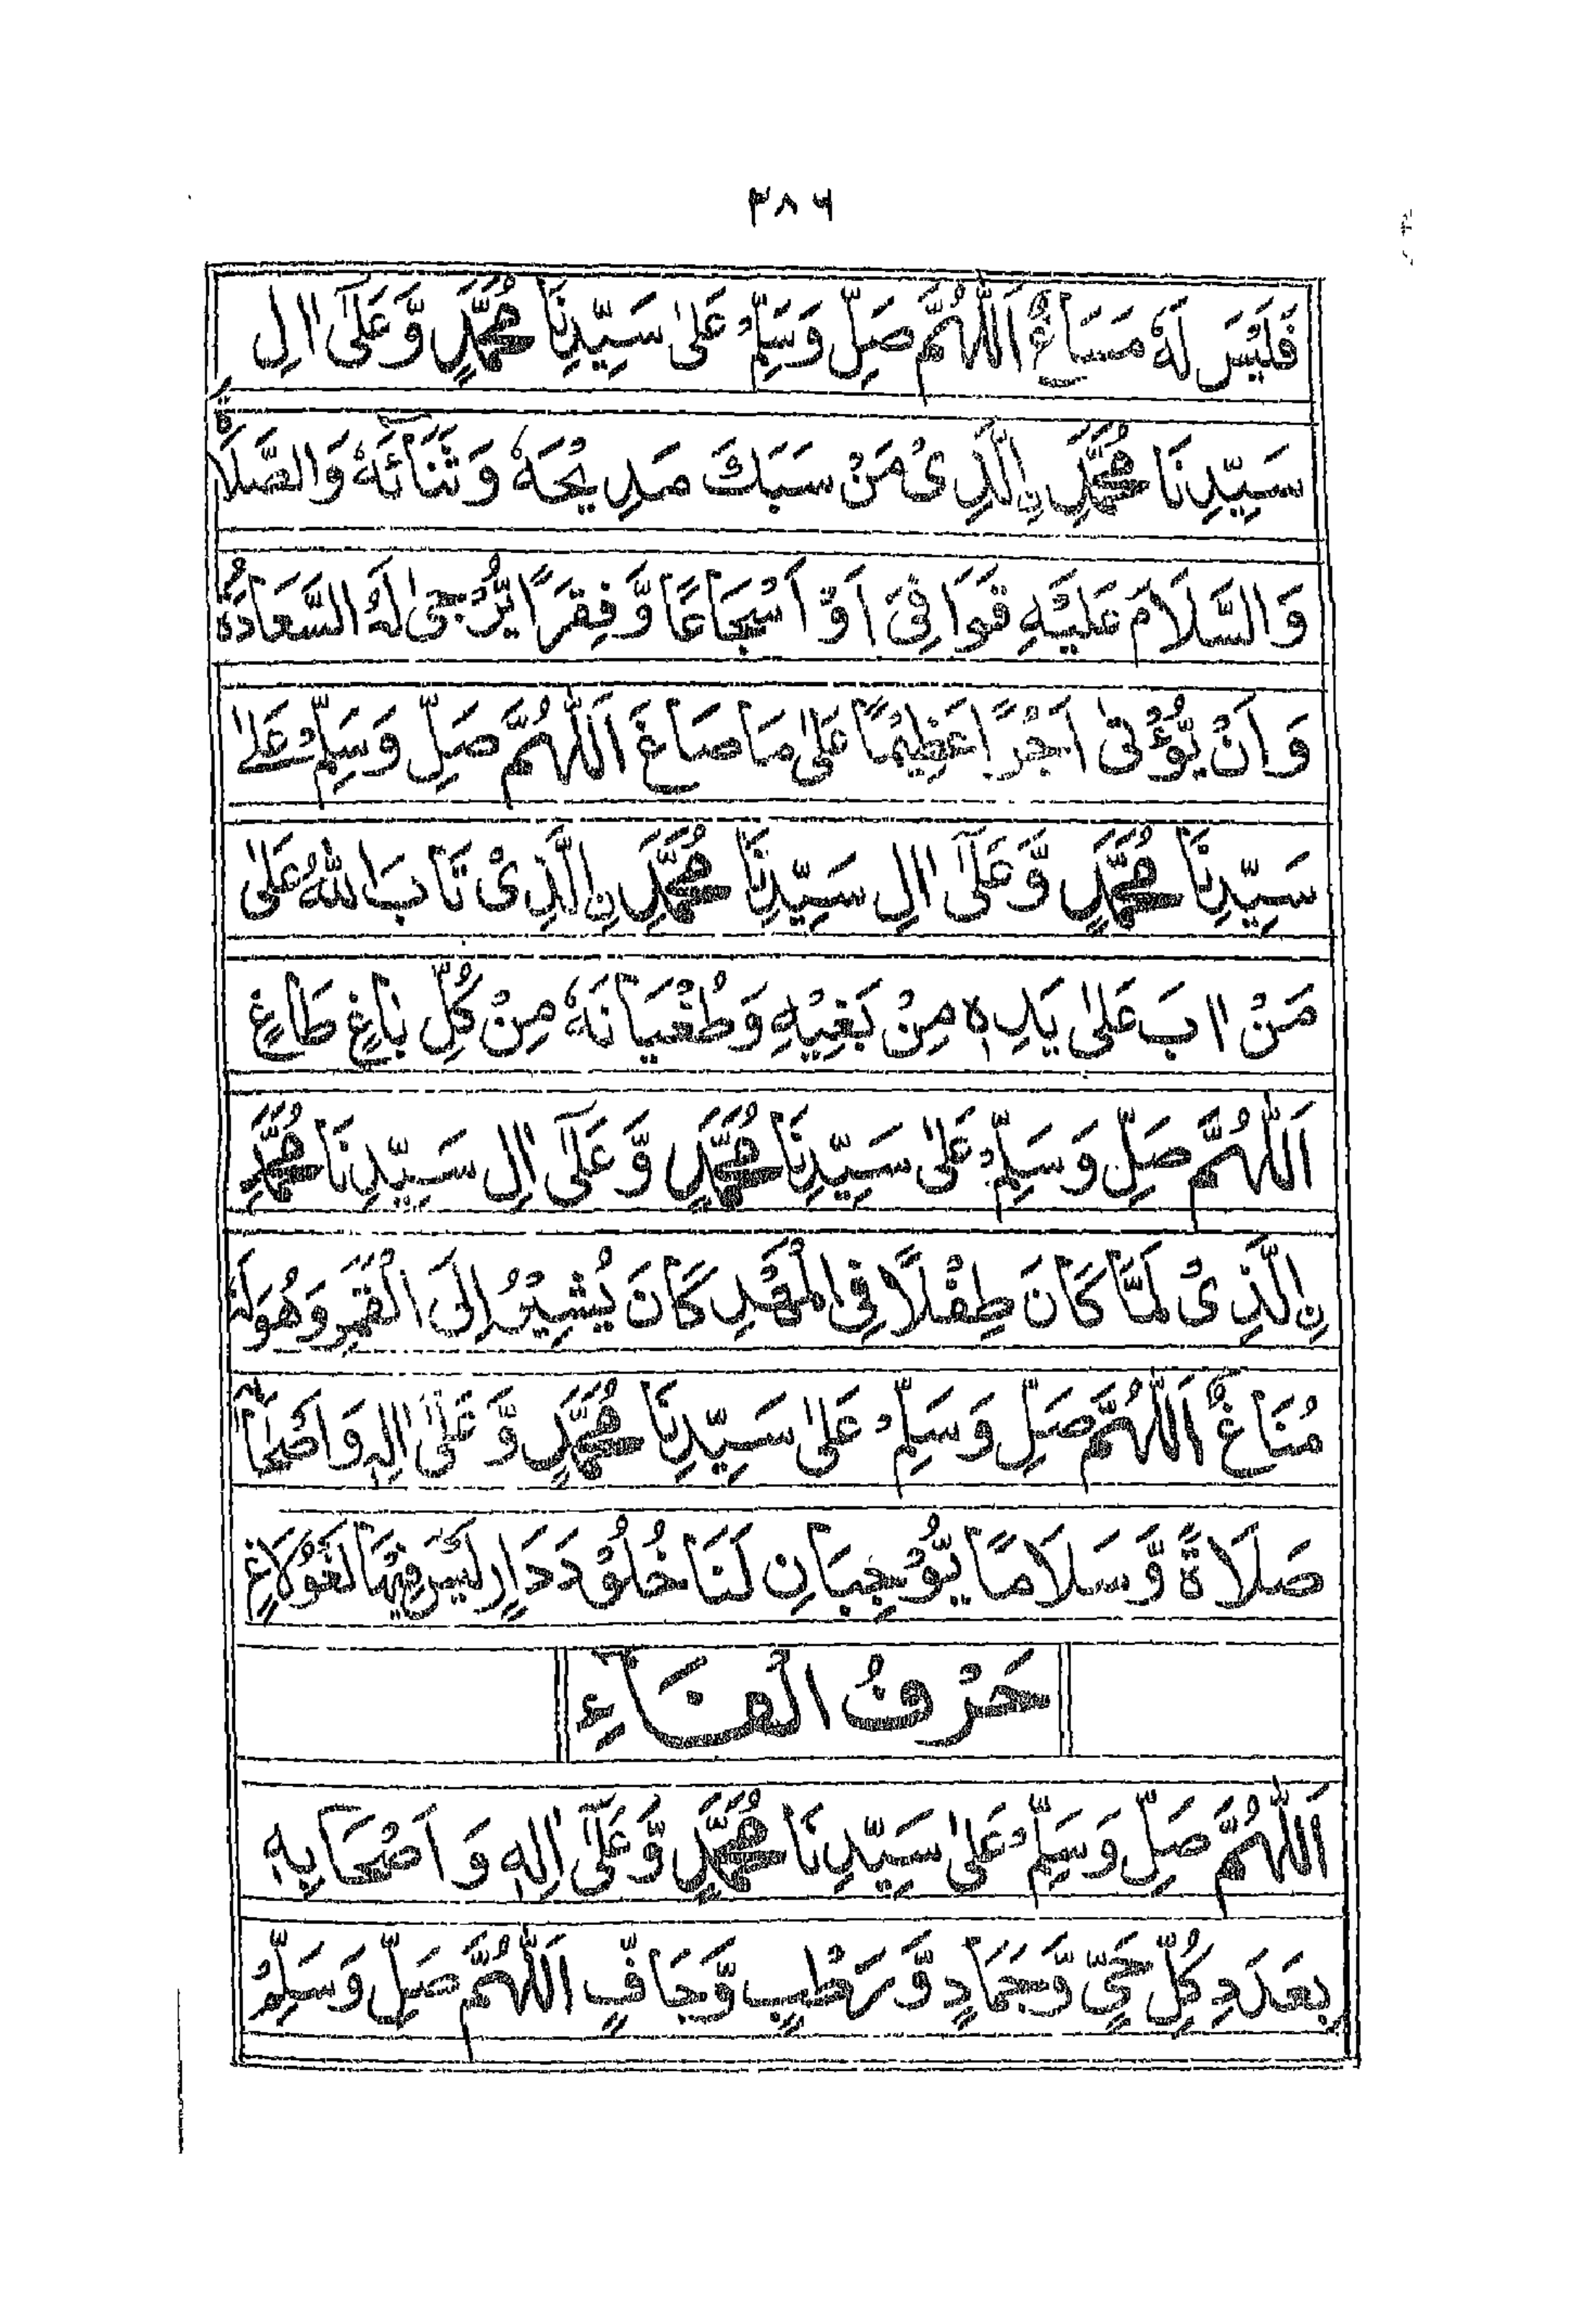 ۳۸۶
فَلَیْسَ لَهٗ مَسَاغٌ اَللّٰهُمَّ صَلِّ وَسَلِّمْ عَلٰی سَیِّدِنَا مُحَمَّدٍ وَّعَلٰۤی اٰلِ
سَیِّدِنَا مُحَمَّدِ نِ الَّذِیْ مَنْ سَبَكَ مَدِیْحَهٗ وَثَنَآئَهٗ وَالصَّلَاةَ
وَالسَّلَامَ عَلَیْهِ قَوَافِیَ اَوْ اَسْجَاعًا وَّفِقَرًا یُّرْجٰی لَهُ السَّعَادَةُ
وَاَنْ یُّؤْتٰی اَجْرًا عَظِیْمًا عَلٰی مَا صَاغَ اَللّٰهُمَّ صَلِّ وَسَلِّمْ عَلٰی
سَیِّدِنَا مُحَمَّدٍ وَّعَلٰۤی اٰلِ سَیِّدِنَا مُحَمَّدِ نِ الَّذِیْ تَابَ اللّٰهُ عَلٰی
مَنْ اٰبَ عَلٰی یَدِهٖ مِنْ بَغْیِهٖ وَطُغْیَانَهٗ مِنْ كُلِّ بَاغٍ طَاغٍ
اَللّٰهُمَّ صَلِّ وَسَلِّمْ عَلٰی سَیِّدِنَا مُحَمَّدٍ وَّعَلٰۤی اٰلِ سَیِّدِنَا مُحَمَّدِ
نِ الَّذِیْ لَمَّا كَانَ طِفْلًا فِی الْمَهْدِ كَانَ یُشِیْرُ اِلَی الْقَمَرِ وَهُوَ لَهٗ
مُنَاغٌ اَللّٰهُمَّ صَلِّ وَسَلِّمْ عَلٰی سَیِّدِنَا مُحَمَّدٍ وَّعَلٰۤی اٰلِهٖ وَاَصْحَابِهٖ
صَلَاةً وَّسَلَامًا یُّوْجِبَانِ لَنَا خُلُوْدَ دَارٍ لَیْسَ فِیْهَا لَغْوُ لَاغٍ
حَرْفُ الْفَآءِ
اَللّٰهُمَّ صَلِّ وَسَلِّمْ عَلٰی سَیِّدِنَا مُحَمَّدٍ وَّعَلٰۤی اٰلِهٖ وَاَصْحَابِهٖ
بِعَدَدِ كُلِّ حَیٍّ وَّجَمَادٍ وَّرَطْبٍ وَّجَافٍّ اَللّٰهُمَّ صَلِّ وَسَلِّمْ